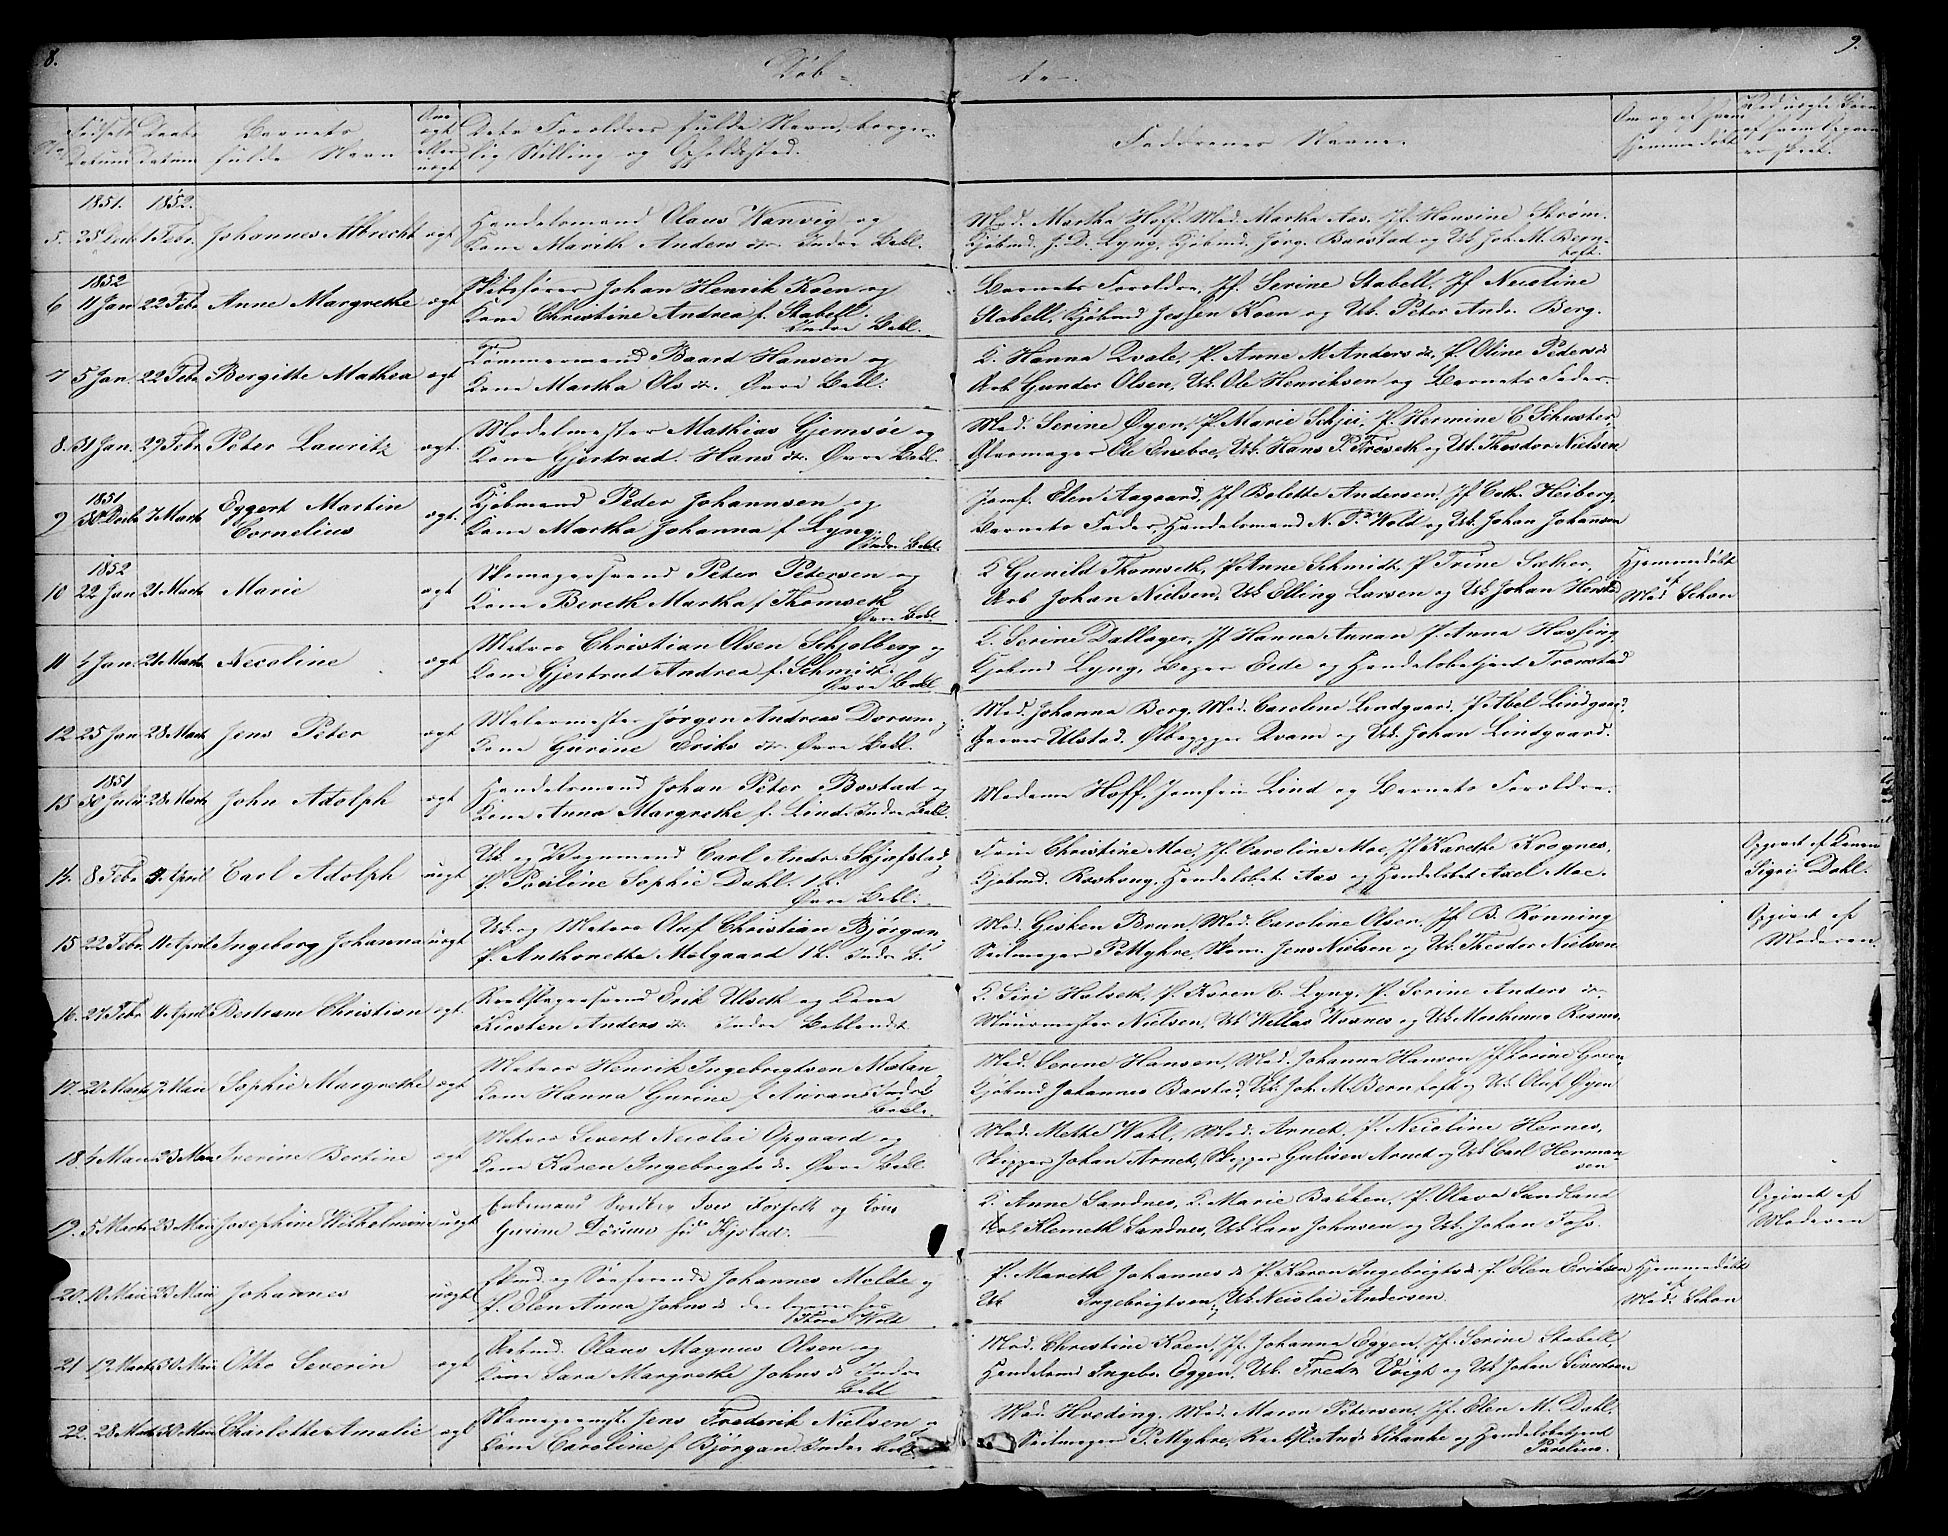 8.
9.
Døb-
te.
No
Fødsels
Datum
Daabs
datum
Barnets
fulde Navn
Om
ægt
eller
uægt
Dets Forældres fulde Navn, borger-
lig Stilling og Opholdssted.
Faddernes Navne.
Hjemmedøbt
1851. 1852.
5. 25 Dec 1 Febr. Johannes Albrecht ægt Handelsmand Olaus Wanvig og
Kone Marith Anders dr. Indre Bakl.
Mad. Martha Hoff, Mad. Martha Aas, Jf. Hansine Strøm.
Kjøbmd. J. D. Lyng, Kjøbmd. Jørg. Barstad og Uk. Joh. M. Bern-
hoft.
1852
6 11 Jan 22 Febr Anne Margrethe ægt Skibsfører Johan Henrik Koen og
Kone Christine Andrea f. Stabell.
Indre Bakl.
Barnets Forældre, Jf. Serine Stabell, Jf Nicoline
Stabell, Kjøbmd Jessen Koen og Uk. Peter Andr. Berg.
7 5 Jan. 22 Febr Bergitte Mathea ægt Tømmermand Baard Hansen og
Kone Martha Ols dr. Øvre Bakl.
K. Hanna Qvale, P. Anne M. Anders dr, P. Oline Peders dr
Arb Gunder Olsen, Uk. Ole Henriksen og Barnets Fader.
8. 31 Jan. 29 Febr Peter Lauritz ægt. Modelmester Mathias Gjemsøe og
Kone Gjertrud Hans dr. Øvre Bakl.
Mad. Serine Øyen, P. Marie Skjei, P. Hermine C Schuster,
Glarmager Ole Eneboe, Uk. Hans P. Træseth og Uk. Theodor Nielsen
1851
9 30 Decbr 7 Marts Eggert Martin
Cornelius ægt. Kjøbmand Peder Johannsen og
Kone Martha Johanna f. Lyng.
Indre Bakl.
Jomf. Elen Aagaard, Jf Bolette Andersen, Jf Cath. Heiberg,
Barnets Fader, Handelsmand N. P. Wold og Uk. Johan Johansen
1852
10 22 Jan 21 Marts Marie ægt Skomagersvend Peter Petersen og
Kone Bereth Martha f Thomseth
Øvre Bakl
K Gunild Thomseth, P Anne Schmidt, P. Trine Sæther,
Arb Johan Nielsen, Uk Elling Larsen og Uk Johan Herstad
Hjemmedøbt
af
Mad Schon
11 4 Jan 21 Marts Nicoline ægt Matros Christian Olsen Schjolberg og
Kone Gjertrut Andrea f. Schmidt.
Øvre Bakl
K. Serine Dallager, Jf Hanna Annan P. Anna Hassing
Kjøbmd Lyng, Bager Eide og Handelsbetjent Tronstad
12 25 Jan 28 Marts Jens Peter ægt Malermester Jørgen Andreas Dorum
Kone Gurine Eriks dr. Øvre Bakl.
Mad. Johanna Berg, Mad. Caroline Lindgaard, P. Abel Lindgaard
Garver Ulstad, Ølbrygger Qvam og Uk. Johan Lindgaard.
1851
13 30 Julii 28 Marts John Adolph ægt Handelsmand Johan Peter Bostad og
Kone Anna Margrethe f. Lind. Indre Bakl.
Madame Hoff, Jomfru Lind og Barnets Forældre.
14. 8 Febr 4 April Carl Adolph uægt Uk. og Bogmand Carl Andr. Skjefstad
P. Pauline Sophie Dahl. 1 L.
Øvre Bakl.
Frue Christine Moe, Jf. Caroline Moe, Jf Karethe Krognes,
Kjøbmd. Rosvong, Handelsbet. Aas og Handelsbet Axel Moe.
Opgivet af Konen
Sigri Dahl.
15 22 Febr 11 April Ingeborg Johanna uægt Uk og Matros Oluf Christian Bjørgan
P. Anthonette Mølgaard 1 L. Indre B.
Mad. Gesken Brun, Mad. Caroline Olsen, Jf B. Rønning
Seilmager P. Myhre, Skom. Jens Nielsen og Uk. Theodor Nielsen
Opgivet af
Moderen.
16. 27 Febr 11 April Bertram Christian ægt. Rebslagersvend Erik Ulseth og Kone
Kirsten Anders dr. Indre Baklandet
K. Siri Halseth, P. Karen C. Lyng, P. Serine Anders dr.
Muurmester Nielsen, Uk Wellas Wosnes og Uk. Marthinus Rosnes.
17. 20 Marts 7 Maii Sophie Margrethe ægt Matros Henrik Ingebrigtsen Mælan
Kone Hanna Gurine f Auran Indre
Bakl.
Mad. Serene Hansen, Mad. Johanna Hansen, Jf Lorine Green
Kjøbmd Johannes Barstad, Uk. Joh. M. Bernhoft og Uk Oluf Øyen
18. 4 Maii 23 Maii Iverine Bertine ægt Matros Sivert Nicolai Opgaard og
Kone Karen Ingebrigts dr. Øvre Bakl.
Mad. Methe Wahl, Mad. Arnet, P. Nicoline Hernes,
Skipper Johan Arnet, Skipper Gulisen Arnet og Uk Carl Herman-
sen
19. 5 Marts 23 Maii Josephine Wilhelmine uægt
Gurine Dörum
K. Anne Sandnes, K. Marie Bakken, P. Olava Sandland
Klemeth Sandnes, Uk. Lars Johnsen og Uk. Johan Foss.
Opgivet af
Moderen
20. 10 Maii 23 Maii Johannes uægt Johannes Molde og
P. Elen Anna Johns dr
Wold
P. Mareth Johannes dr P. Karen Ingebrigts dr. P. Elen Eriksen
Uk Ingebrigtsen, Uk. Nicolai Andersen.
Hjemmedøbt
af
Mad. Schon
21 19 Marts 30 Maii Otto Severin ægt Arbmd. Olaus Magnus Olsen og
Kone Sara Margrethe Johns dr Indre
Bakl
Mad. Christine Koen, Jf. Johanna Eggen, Jf. Serine Stabell,
Handelsmd Ingebr. Eggen, Uk. Fredr Voigt og Uk Johan Sivertsen
22. 28 Marts 30 Maii Charlotte Amalie ægt Skomagermst. Jens Frederik Nielsen og
Kone Caroline f Bjørgan. Indre Bakl.
Mad. Hveding, Mad. Maren Petersen, Jf. Elen M. Dahl,
Seilmager P. Myhre, Rebsl. Andr Schanke og Handelsbetjent
Parelius.